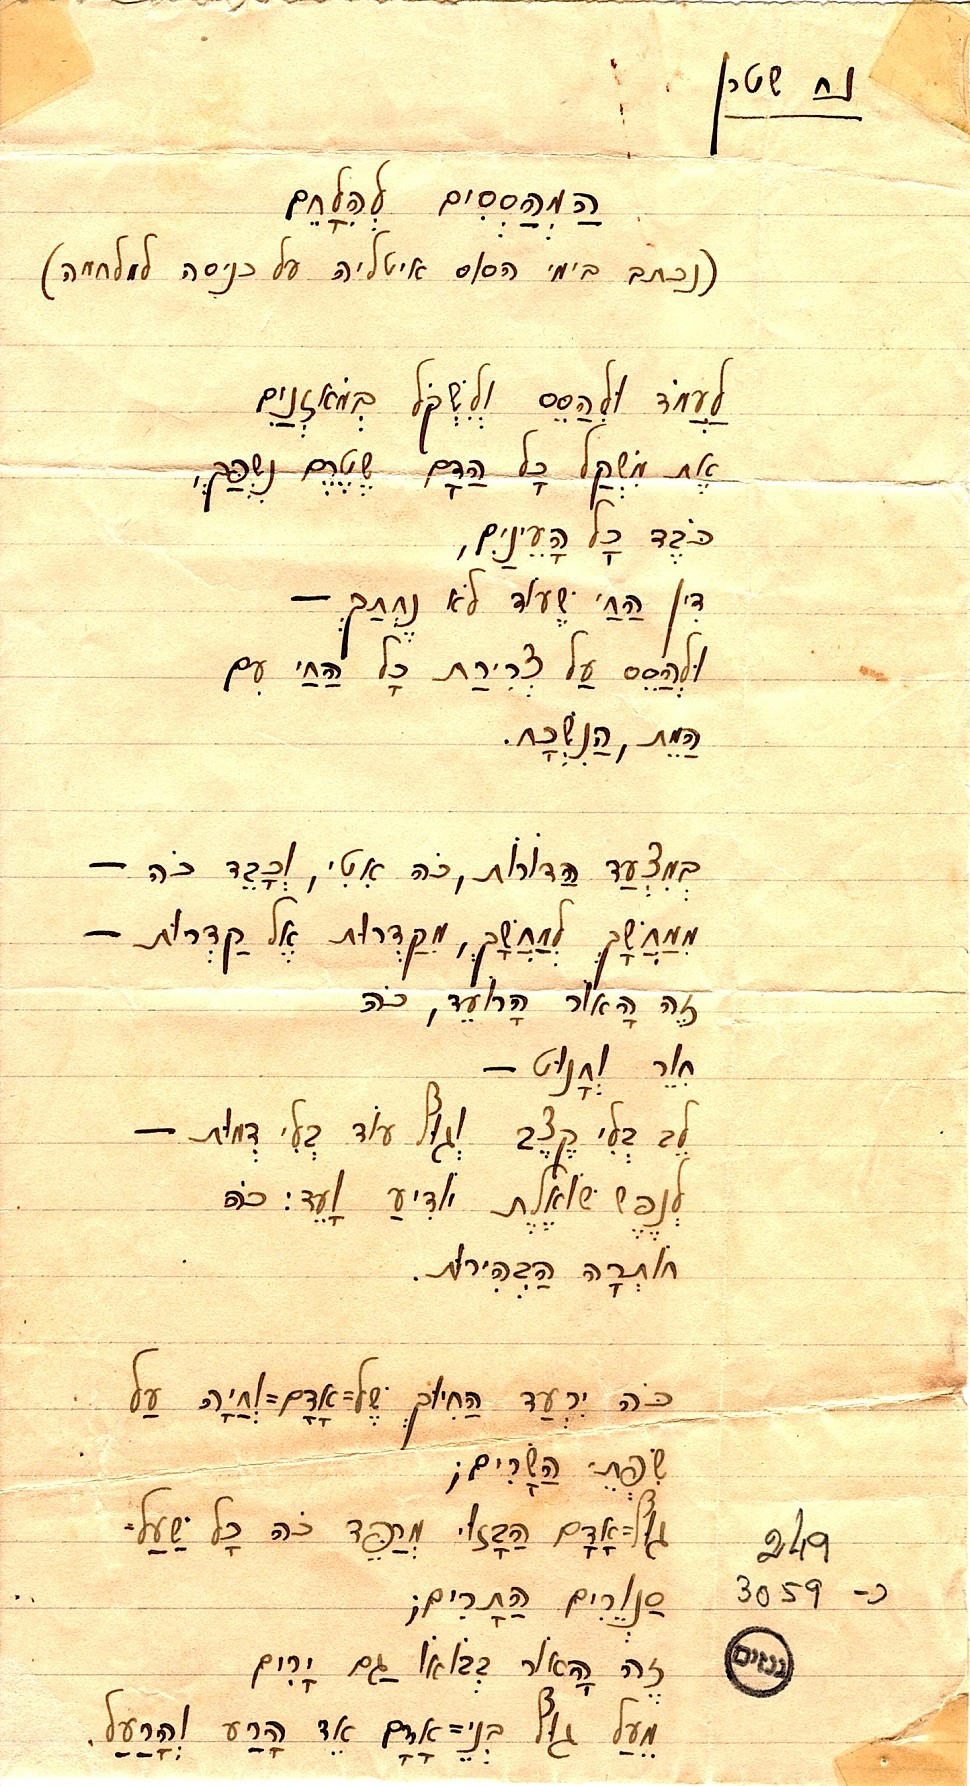 נח שטרן
הַמְהַסְסִים לְהִלָּחֵם
(נכתב בימי הסוס איטליה על כניסה למלחמה)
לַעֲמֹד וּלְהַסֵּס וְלִשְׁקֹל בְּמֹאזְנַיִם
אֶת מִשְׁקַל כָּל הַדָּם שֶׁטֶּרֶם נִשְׁפַּךְ,
כֹּבֶד כָּל הָעֵינַיִם,
דִּין הַחַי שֶׁעוֹד לֹא נֶחְתַּךְ –
וּלְהַסֵּס עַל צְרִירַת כָּל הַחַי עִם
הַמֵּת, הַנִּשְׁכָּח.
בְּמִצְעַד הַדּוֹרוֹת, כֹּה אִטִּי, וְכָבֵד כֹּה –
מִמַּחֲשָׁךְ לְמַחֲשָׁךְ, מִקַּדְרוּת אֶל קַדְרוּת –
זֶה הָאוֹר הָרוֹעֵד, כֹּה
חִוֵּר וְחָנוּט –
לֵב בְּלִי קֶצֶב וְגוּף עוֹד בְּלִי דְמוּת –
לְנֶפֶשׁ שׁוֹאֶלֶת יוֹדִיעַ וָעֵד: כֹּה
חוֹתְרָה הַבְּהִירוּת.
כֹּה יִרְעַד הַחִיּוּךְ שֶׁל=אָדָם=וְחַיָּה עַל
שִׂפְתֵי הַשָּׂרִים;
גּוּף=אָדָם הַבָּזוּי מְרַפֵּד כֹּה כָּל שַׁעַל=
סַנְוֵרִים הַתָּרִים;
זֶה הָאוֹר בְּבוֹאוֹ גַם יָרִים
מֵעַל גּוּף בְּנֵי=אָדָם אֵד הָרַע וְהָרַעַל.
249
כ- 3059
גנזים